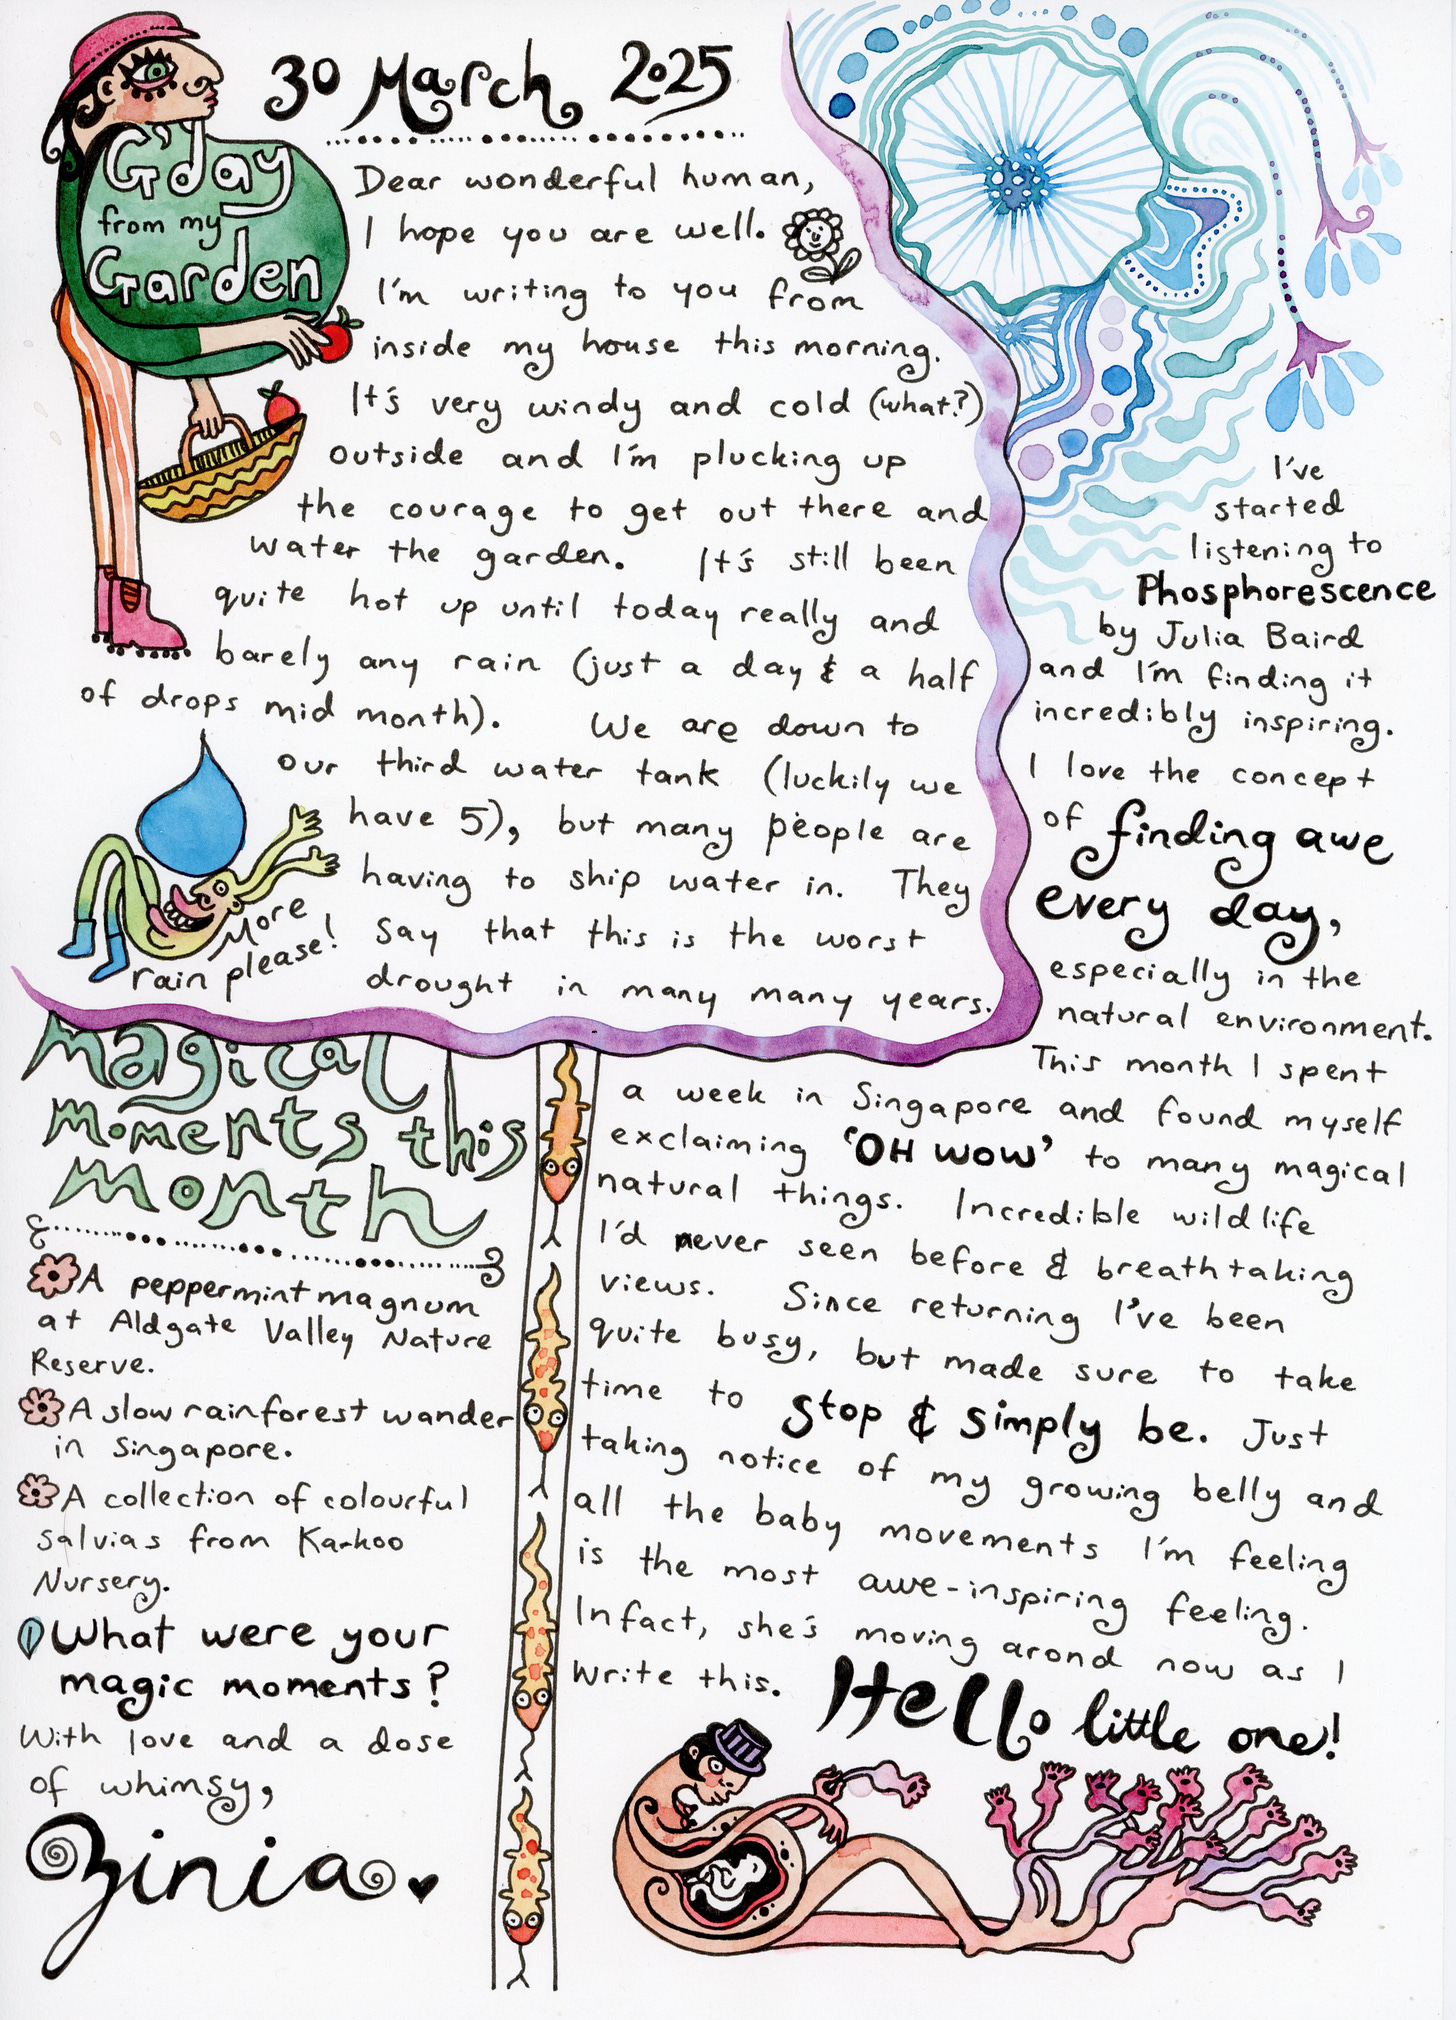 30 March 2025
G'day
from my
Garden
Dear wonderful human,
I hope you are well.
I'm writing to you from
inside my house this morning.
It's very windy and cold (what?)
outside and I'm plucking up
the courage to get out there and
water the garden. It's still been
quite hot up until today really and
barely any rain (just a day & a half
of drops mid month). We are down to
our third water tank (luckily we
have 5), but many people are
having to ship water in. They
say that this is the worst
drought in many many years.
More
rain please!
I've
started
listening to
Phosphorescence
by Julia Baird
and I'm finding it
incredibly inspiring.
I love the concept
of finding awe
every day,
especially in the
natural environment.
This month I spent
a week in Singapore and found myself
exclaiming 'OH WOW' to many magical
natural things. Incredible wildlife
I'd never seen before & breathtaking
views. Since returning I've been
quite busy, but made sure to take
time to stop & simply be. Just
taking notice of my growing belly and
all the baby movements I'm feeling
is the most awe-inspiring feeling.
Infact, she's moving arond now as I
write this.
Hello little one!
Magical
Moments this
Month
A peppermint magnum
at Aldgate Valley Nature
Reserve.
A slow rainforest wander
in Singapore.
A collection of colourful
salvias from Karkoo
Nursery.
What were your
magic moments?
With love and a dose
of whimsy,
Zinia